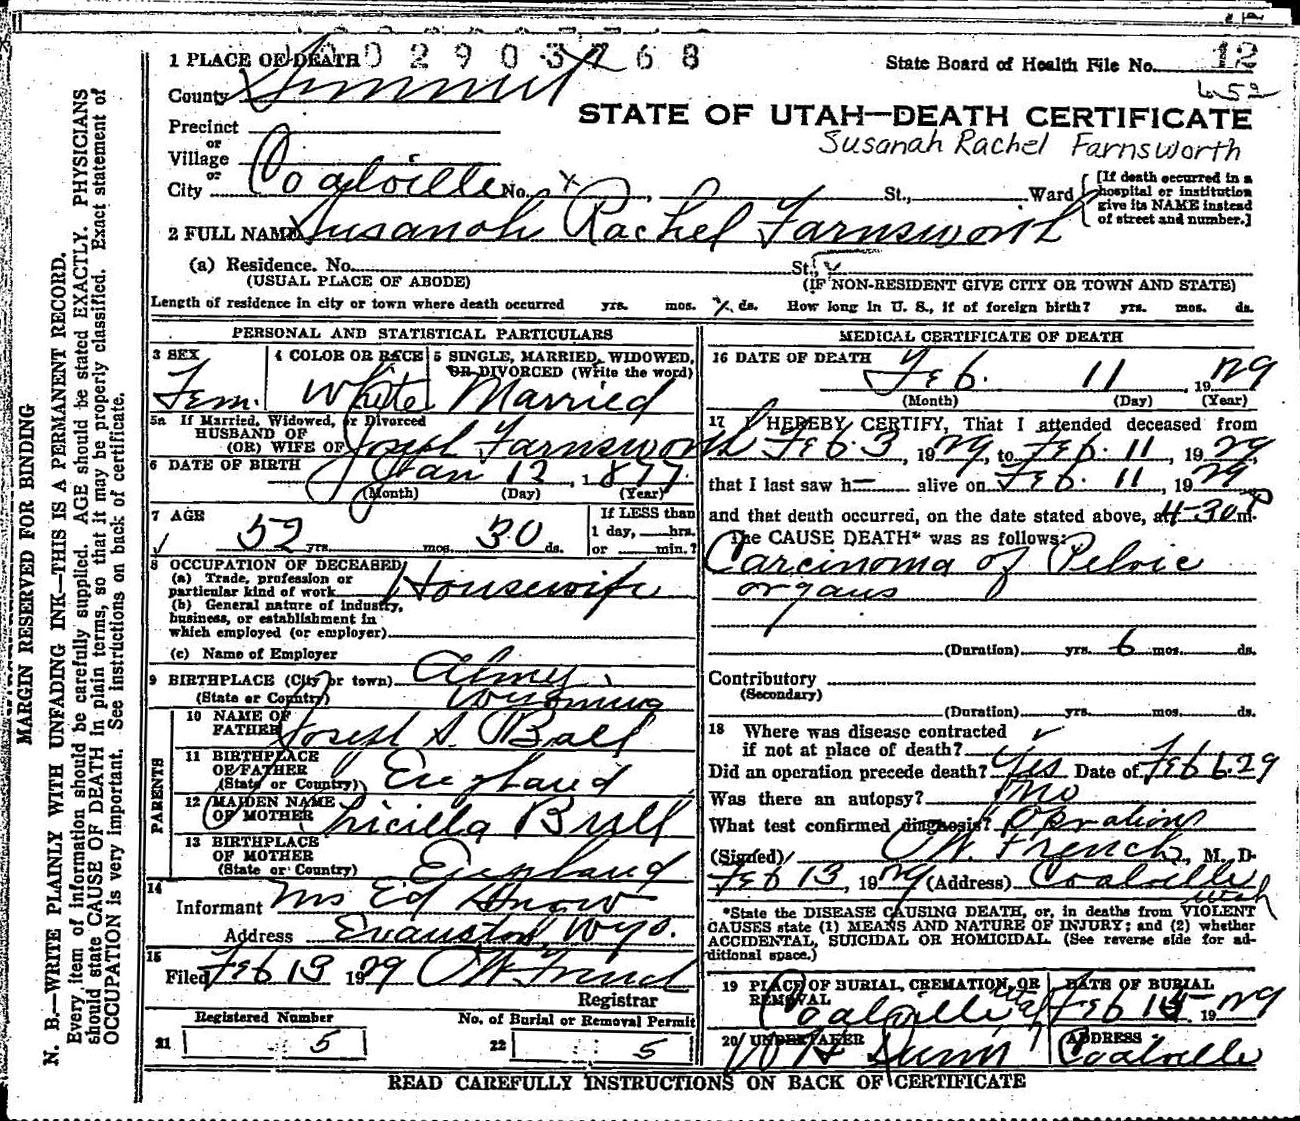 1 PLACE OF DEATH 0 0 2 9 0 3 7 6 8
State Board of Health File No. 12
652
County Summit
STATE OF UTAH—DEATH CERTIFICATE
Susanah Rachel Farnsworth
Precinct
or
Village
or
City Coalville No. x St., Ward
[If death occurred in a hospital or institution give its NAME instead of street and number.]
2 FULL NAME Susanah Rachel Farnsworth
(a) Residence. No. St.,
(USUAL PLACE OF ABODE) (IF NON-RESIDENT GIVE CITY OR TOWN AND STATE)
Length of residence in city or town where death occurred yrs. mos. ds. How long in U. S., if of foreign birth? yrs. mos. ds.
PERSONAL AND STATISTICAL PARTICULARS
3 SEX Fem.
4 COLOR OR RACE White
5 SINGLE, MARRIED, WIDOWED, OR DIVORCED (Write the word) Married
5a If Married, Widowed, or Divorced
HUSBAND OF
(OR) WIFE OF Joseph Farnsworth
6 DATE OF BIRTH Jan 12, 1877
(Month) (Day) (Year)
7 AGE 52 yrs. mos. 30 ds.
If LESS than 1 day, hrs. or min.?
8 OCCUPATION OF DECEASED
(a) Trade, profession or particular kind of work Housewife
(b) General nature of industry, business, or establishment in which employed (or employer)
(c) Name of Employer
9 BIRTHPLACE (City or town) Almy,
(State or Country) Wyoming
PARENTS
10 NAME OF FATHER Joseph S. Ball
11 BIRTHPLACE OF FATHER (State or Country) England
12 MAIDEN NAME OF MOTHER Bull
13 BIRTHPLACE OF MOTHER (State or Country) England
14 Informant Mrs Ed Snow
Address Evanston, Wyo.
15 Filed Feb 13 1929
Registrar
Registered Number
21 5
No. of Burial or Removal Permit
22 5
MEDICAL CERTIFICATE OF DEATH
16 DATE OF DEATH Feb. 11, 1929
(Month) (Day) (Year)
17 I HEREBY CERTIFY, That I attended deceased from
Feb 3, 1929, to Feb. 11, 1929,
that I last saw h— alive on Feb. 11, 1929
and that death occurred, on the date stated above, at 4-30 P m.
The CAUSE DEATH* was as follows:
Carcinoma of Pelvic
organs
(Duration) yrs. 6 mos. ds.
Contributory
(Secondary)
(Duration) yrs. mos. ds.
18 Where was disease contracted
if not at place of death?
Did an operation precede death? Yes Date of Feb 6. 29
Was there an autopsy? No
What test confirmed diagnosis? Operation
(Signed) French, M. D.
Feb 13, 1929 (Address) Coalville
Utah
*State the DISEASE CAUSING DEATH, or, in deaths from VIOLENT
CAUSES state (1) MEANS AND NATURE OF INJURY; and (2) whether
ACCIDENTAL, SUICIDAL OR HOMICIDAL. (See reverse side for ad-
ditional space.)
19 PLACE OF BURIAL, CREMATION, OR REMOVAL Coalville Utah
DATE OF BURIAL Feb 1929
20 UNDERTAKER
ADDRESS Coalville
READ CAREFULLY INSTRUCTIONS ON BACK OF CERTIFICATE
MARGIN RESERVED FOR BINDING
N. B.—WRITE PLAINLY WITH UNFADING INK—THIS IS A PERMANENT RECORD.
Every item of information should be carefully supplied. AGE should be stated EXACTLY. PHYSICIANS
should state CAUSE OF DEATH in plain terms, so that it may be properly classified. Exact statement of
OCCUPATION is very important. See instructions on back of certificate.